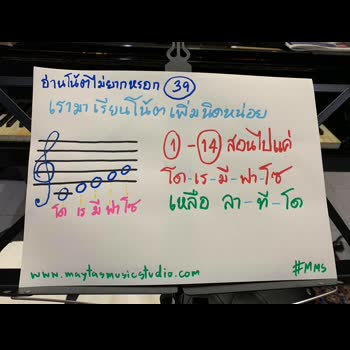 อ่านโน้ตไม่ยากหรอก 39
เรามาเรียนโน้ตเพิ่มนิดหน่อย
1 - 14 สอนไปแค่
โด-เร-มี-ฟา-โซ
เหลือ ลา-ที-โด
โด เร มี ฟา โซ
www.maytasmusicstudio.com
#MMS